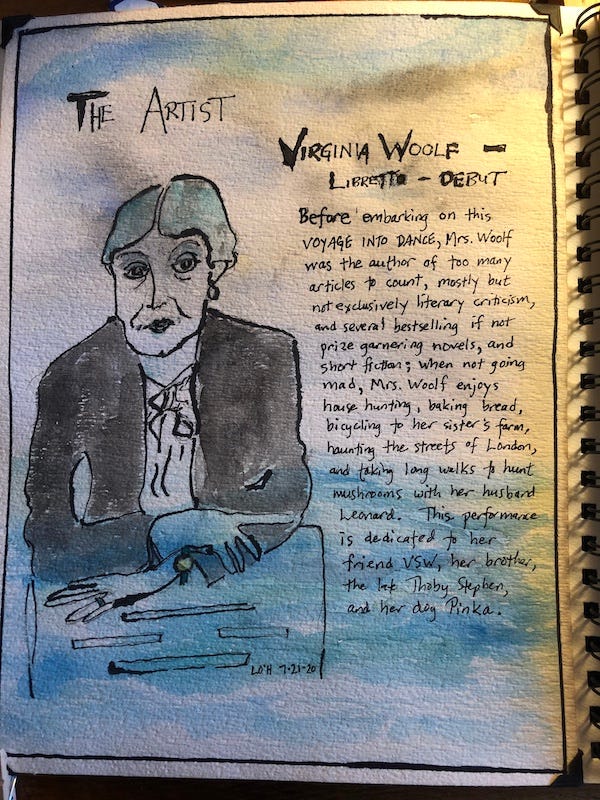 THE ARTIST
VIRGINIA WOOLF –
LIBRETTO – DEBUT
Before embarking on this
VOYAGE INTO DANCE, Mrs. Woolf
was the author of too many
articles to count, mostly but
not exclusively literary criticism,
and several bestselling if not
prize garnering novels, and
short fiction; when not going
mad, Mrs. Woolf enjoys
house hunting, baking bread,
bicycling to her sister's farm,
haunting the streets of London,
and taking long walks to hunt
mushrooms with her husband
Leonard. This performance
is dedicated to her
friend VSW, her brother,
the late Thoby Stephen,
and her dog Pinka.
LO'H 7-21-20